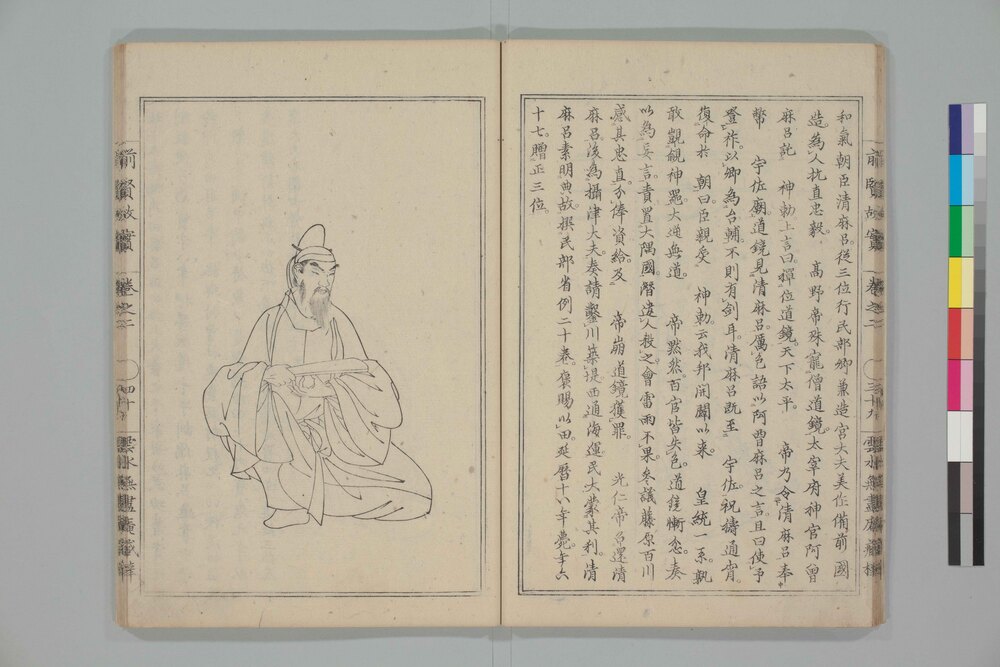 和氣朝臣清麻呂。從三位行民部卿兼造宮大夫美作備前國
造。為人抗直忠毅。 高野帝殊寵僧道鏡。太宰府神官阿曽
麻呂託 神勅上言曰。禪位道鏡。天下太平。 帝乃令清麻呂奉
幣 宇佐廟。道鏡見清麻呂。厲色語以阿曽麻呂之言。且曰。使予
登祚。以卿為台輔。不則有剣耳。清麻呂既至 宇佐。祝禱通宵。
復命於 朝曰。臣親受 神勅。云。我邦開闢以来。 皇統一系。孰
敢覬覦神器。大逆無道。 帝黙然。百官皆失色。道鏡慚忿。奏
以為妄言。責置大隅國。潛遣人殺之。會雷雨不果。參議藤原百川
感其忠直。分俸資給。及 帝崩。道鏡獲罪。 光仁帝召還清
麻呂。後為攝津大夫。奏請鑿川築堤。西通海運。民大蒙其利。清
麻呂素明典故。撰民部省例二十卷。褒賜以田。延暦十八年薨。年六
十七。贈正三位。
前賢故實 卷之二 三十九
前賢故實 卷之二 四十